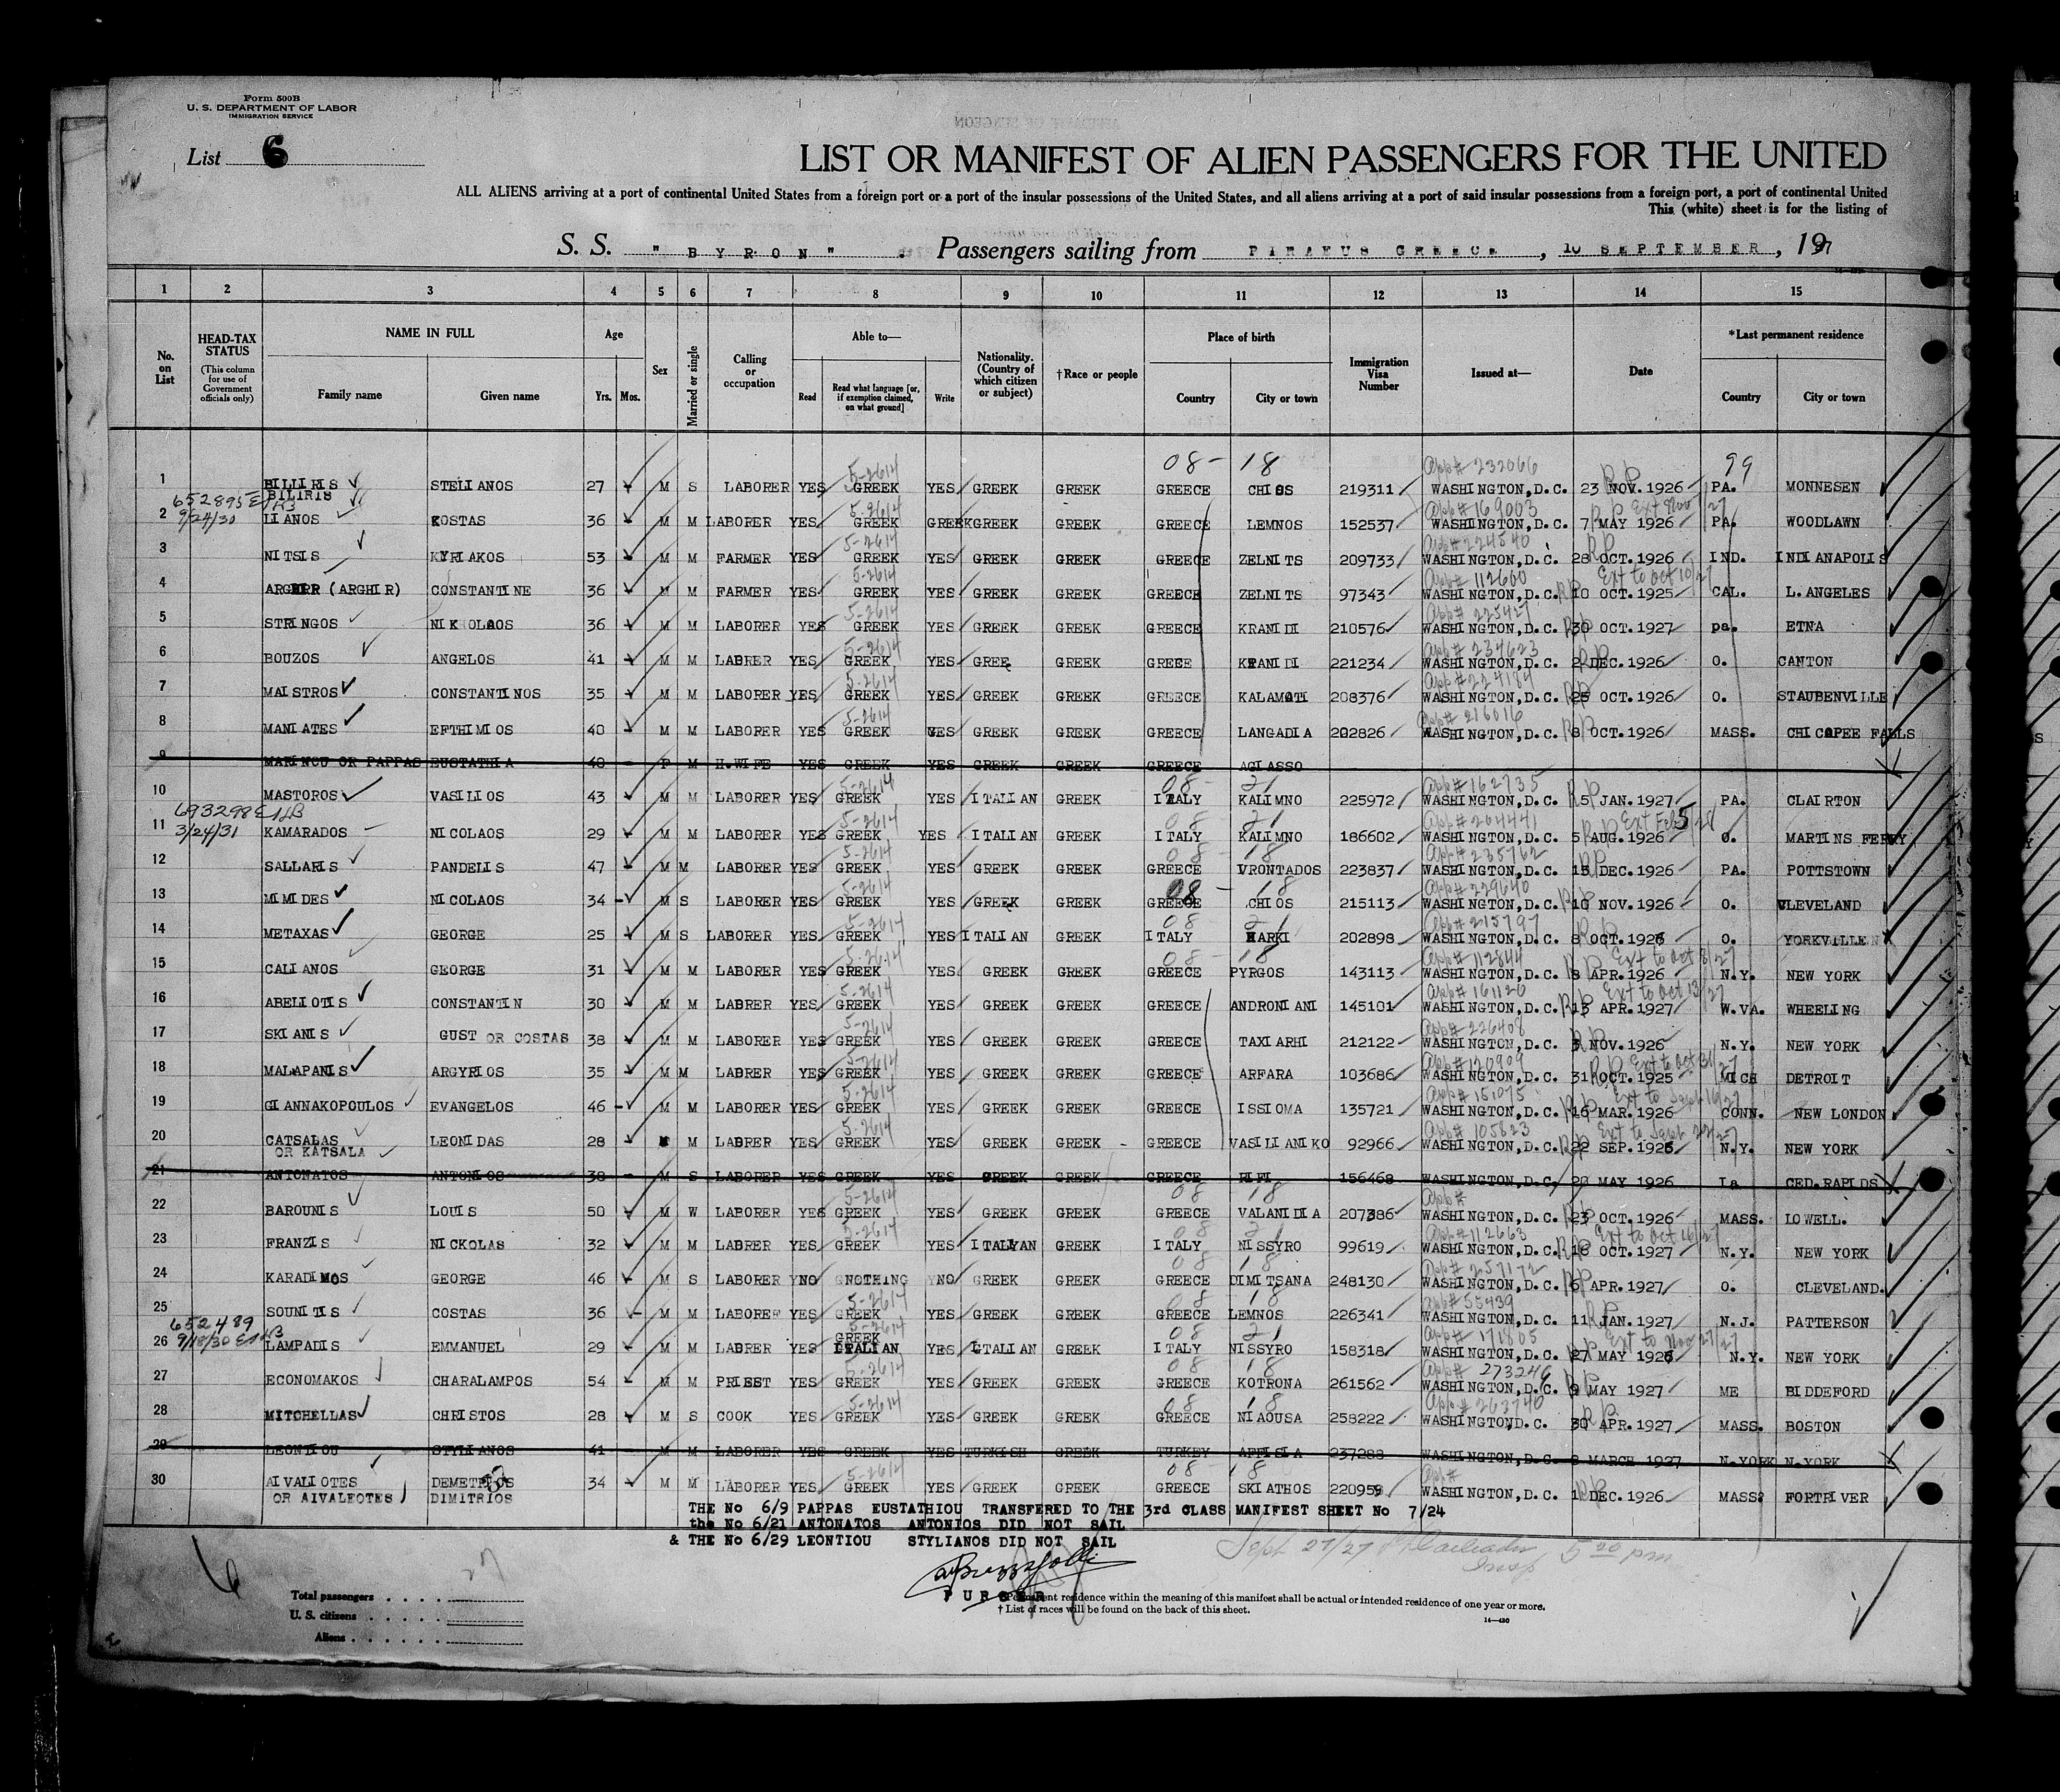 Form 500B
U. S. DEPARTMENT OF LABOR
IMMIGRATION SERVICE
List 6
LIST OR MANIFEST OF ALIEN PASSENGERS FOR THE UNITED
ALL ALIENS arriving at a port of continental United States from a foreign port or a port of the insular possessions of the United States, and all aliens arriving at a port of said insular possessions from a foreign port, a port of continental United
This (white) sheet is for the listing of
S. S. " BYRON " Passengers sailing from PIRAEUS GREECE, 10 SEPTEMBER, 1927
1 2 3 4 5 6 7 8 9 10 11 12 13 14 15
No. on List HEAD-TAX STATUS (This column for use of Government officials only) NAME IN FULL Family name Given name Age Yrs. Mos. Sex Married or single Calling or occupation Able to— Read Read what language [or, if exemption claimed, on what ground] Write Nationality. (Country of which citizen or subject) †Race or people Place of birth Country City or town Immigration Visa Number Issued at— Date *Last permanent residence Country City or town
08 - 18 App# 232066 RP 99
1 BILLIRIS STELIANOS 27 M S LABORER YES 5-2614 GREEK YES GREEK GREEK GREECE CHIOS 219311 WASHINGTON,D.C. 23 NOV.1926 PA. MONNESEN
BILIRIS
652895
9/24/30
2 LIANOS KOSTAS 36 M M LABORER YES 5-2614 GREEK GREEK GREEK GREEK GREECE LEMNOS 152537 App# 169003 WASHINGTON,D.C. 7 MAY 1926 PA. WOODLAWN
3 NITSIS KYRIAKOS 53 M M FARMER YES 5-2614 GREEK YES GREEK GREEK GREECE ZELNITS 209733 App# 224540 WASHINGTON,D.C. 28 OCT.1926 IND. INDIANAPOLIS
4 (ARGHIR) CONSTANTINE 36 M M FARMER YES 5-2614 GREEK YES GREEK GREEK GREECE ZELNITS 97343 App# 112600 WASHINGTON,D.C. RP 10 OCT.1925 Ext to Oct 10/27 CAL. L.ANGELES
5 STRINGOS NIKOLAOS 36 M M LABORER YES 5-2614 GREEK YES GREEK GREEK GREECE KRANIDI 210576 App# 225427 WASHINGTON,D.C. RP 30 OCT.1927 pa. ETNA
6 BOUZOS ANGELOS 41 M M LABRER YES 5-2614 GREEK YES GREE GREEK GREECE KRANIDI 221234 App# 234623 WASHINGTON,D.C. RP 2 DEC.1926 O. CANTON
7 MAISTROS CONSTANTINOS 35 M M LABORER YES 5-2614 GREEK YES GREEK GREEK GREECE KALAMATI 208376 App# 224184 WASHINGTON,D.C. RP 25 OCT.1926 O. STAUBENVILLE
8 MANIATES EFTHIMIOS 40 M M LABORER YES 5-2614 GREEK YES GREEK GREEK GREECE LANGADIA 202826 App# 216016 WASHINGTON,D.C. RP 8 OCT.1926 MASS. CHICOPEE FALLS
9 MARINOU OR PAPPAS EUSTATHIA 40 F M H.WIFE YES GREEK YES GREEK GREEK GREECE AGIASSO
10 MASTOROS VASILIOS 43 M M LABORER YES 5-2614 GREEK YES ITALIAN GREEK 08 - 21 ITALY KALIMNO 225972 App# 162735 WASHINGTON,D.C. RP 5 JAN.1927 PA. CLAIRTON
693298
3/24/31
11 KAMARADOS NICOLAOS 29 M M LABORER YES 5-2614 GREEK YES ITALIAN GREEK 08 - 21 ITALY KALIMNO 186602 App# 204441 WASHINGTON,D.C. RP 5 AUG.1926 Ext Feb 5/28 O. MARTINS FERRY
12 SALLARIS PANDELIS 47 M M LABORER YES 5-2614 GREEK YES GREEK GREEK 08 - 18 GREECE VRONTADOS 223837 App# 235762 WASHINGTON,D.C. RP 15 DEC.1926 PA. POTTSTOWN
13 MIMIDES NICOLAOS 34 M S LABORER YES 5-2614 GREEK YES GREEK GREEK 08 - 18 GREECE CHIOS 215113 App# 229640 WASHINGTON,D.C. RP 10 NOV.1926 O. CLEVELAND
14 METAXAS GEORGE 25 M S LABORER YES 5-2614 GREEK YES ITALIAN GREEK 08 21 ITALY HARKI 202898 App# 215797 WASHINGTON,D.C. RP 8 OCT.1926 O. YORKVILLE
15 CALIANOS GEORGE 31 M M LABORER YES 5-2614 GREEK YES GREEK GREEK 08 - 18 GREECE PYRGOS 143113 App# 112844 WASHINGTON,D.C. RP 8 APR.1926 Ext to Oct 8/27 N.Y. NEW YORK
16 ABELIOTIS CONSTANTIN 30 M M LABRER YES 5-2614 GREEK YES GREEK GREEK GREECE ANDRONIANI 145101 App# 161126 WASHINGTON,D.C. RP 13 APR.1927 Ext to Oct 13/27 W.VA. WHEELING
17 SKIANIS GUST OR COSTAS 38 M M LABORER YES 5-2614 GREEK YES GREEK GREEK GREECE TAXIARHI 212122 App# 226408 WASHINGTON,D.C. RP 3 NOV.1926 N.Y. NEW YORK
18 MALAPANIS ARGYRIOS 35 M M LABRER YES 5-2614 GREEK YES GREEK GREEK GREECE ARFARA 103686 App# 120909 WASHINGTON,D.C. 31 OCT.1925 RP Ext to Oct 31/27 MICH DETROIT
19 GIANNAKOPOULOS EVANGELOS 46 M M LABORER YES 5-2614 GREEK YES GREEK GREEK GREECE ISSIOMA 135721 App# 151075 WASHINGTON,D.C. RP 16 MAR.1926 Ext to Sept 16/27 CONN. NEW LONDON
20 CATSALAS LEONIDAS 28 M M LABRER YES 5-2614 GREEK YES GREEK GREEK GREECE VASILIANIKO 92966 App# 105823 WASHINGTON,D.C. RP 22 SEP.1925 Ext to Sept 22/27 N.Y. NEW YORK
OR KATSALA
21 ANTONATOS ANTONIOS 38 M S LABORER YES GREEK YES GREEK GREEK GREECE RIFI 156468 WASHINGTON,D.C. 20 MAY 1926 Ia CED.RAPIDS
22 BAROUNIS LOUIS 50 M W LABORER YES 5-2614 GREEK YES GREEK GREEK 08 18 GREECE VALANIDIA 207386 App# WASHINGTON,D.C. RP 23 OCT.1926 MASS. LOWELL.
23 FRANZIS NICKOLAS 32 M M LABRER YES 5-2614 GREEK YES ITALYAN GREEK 08 21 ITALY NISSYRO 99619 App# 112663 WASHINGTON,D.C. RP 16 OCT.1927 Ext to Oct 16/27 N.Y. NEW YORK
24 KARADIMOS GEORGE 46 M S LABORER NO NOTHING NO GREEK GREEK 08 18 GREECE DIMITSANA 248130 App# 257172 WASHINGTON,D.C. RP 6 APR.1927 O. CLEVELAND.
25 SOUNITIS COSTAS 36 M M LABORER YES 5-2614 GREEK YES GREEK GREEK 08 18 GREECE LEMNOS 226341 App# 55439 WASHINGTON,D.C. 11 JAN.1927 N.J. PATTERSON
652489
9/18/30
26 LAMPADIS EMMANUEL 29 M M LABRER YES 5-2614 GREEK ITALIAN YES ITALIAN GREEK 08 21 ITALY NISSYRO 158318 App# 171805 WASHINGTON,D.C. RP 27 MAY 1926 Ext to Nov 27/27 N.Y. NEW YORK
27 ECONOMAKOS CHARALAMPOS 54 M M PRIEST YES 5-2614 GREEK YES GREEK GREEK 08 18 GREECE KOTRONA 261562 App# 273246 WASHINGTON,D.C. RP 9 MAY 1927 ME BIDDEFORD
28 MITCHELLAS CHRISTOS 28 M S COOK YES 5-2614 GREEK YES GREEK GREEK 08 18 GREECE NIAOUSA 258222 App# 263740 WASHINGTOND.C. RP 30 APR.1927 MASS. BOSTON
29 LEONTIOU STYLIANOS 41 M M LABORER YES GREEK YES TURKISH GREEK TURKEY 237288 WASHINGTON,D.C. 8 MARCH 1927 N.YORK N.YORK
30 AIVALIOTES DEMETRIOS 34 M M LABORER YES 5-2614 GREEK YES GREEK GREEK 08 18 GREECE SKIATHOS 220959 App# WASHINGTON,D.C. RP 1 DEC.1926 MASS. FORTRIVER
OR AIVALEOTES DIMITRIOS
THE No 6/9 PAPPAS EUSTATHIOU TRANSFERED TO THE 3rd CLASS MANIFEST SHEET No 7/24
the No 6/21 ANTONATOS ANTONIOS DID NOT SAIL
& THE No 6/29 LEONTIOU STYLIANOS DID NOT SAIL
Sept 27/27 Insp 5 20 pm
6
27
PURSER
Total passengers
U. S. citizens
Aliens
*Permanent residence within the meaning of this manifest shall be actual or intended residence of one year or more.
† List of races will be found on the back of this sheet.
14—430